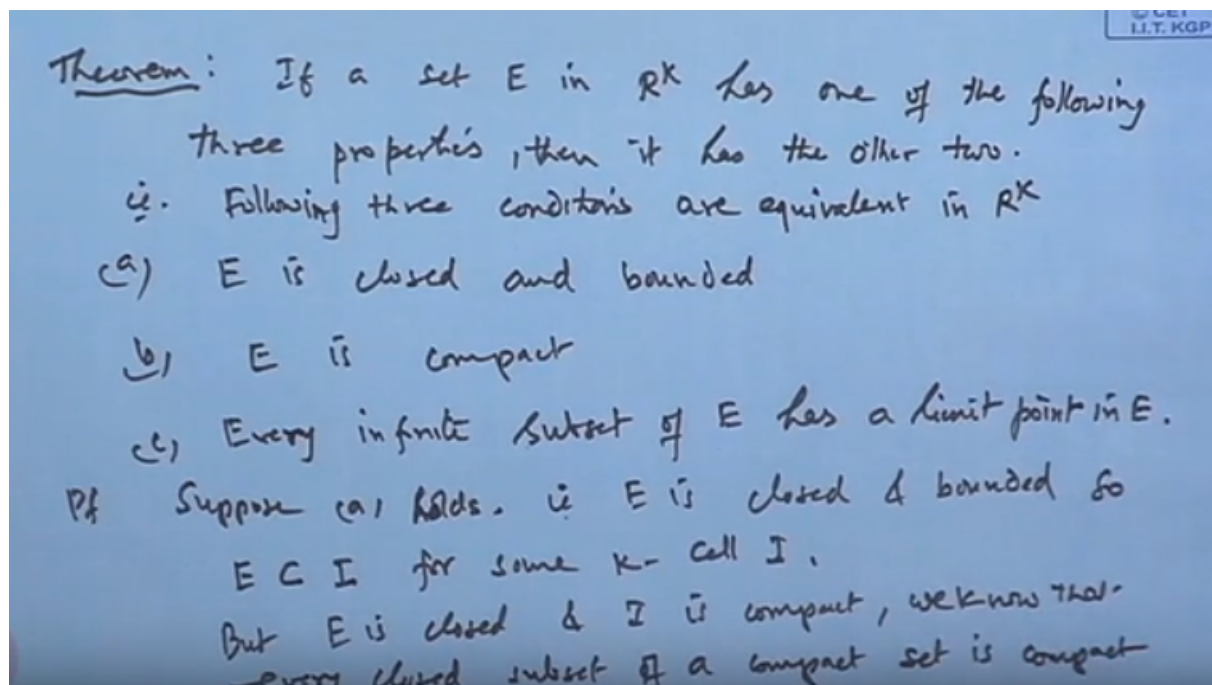 © CET
I.I.T. KGP
Theorem: If a set E in R^K has one of the following
three properties, then it has the other two.
ie. Following three conditions are equivalent in R^K
(a) E is closed and bounded
(b) E is compact
(c) Every infinite subset of E has a limit point in E.
Pf Suppose (a) holds. ie E is closed & bounded so
E ⊂ I for some K-cell I.
But E is closed & I is compact, we know that
every closed subset of a compact set is compact